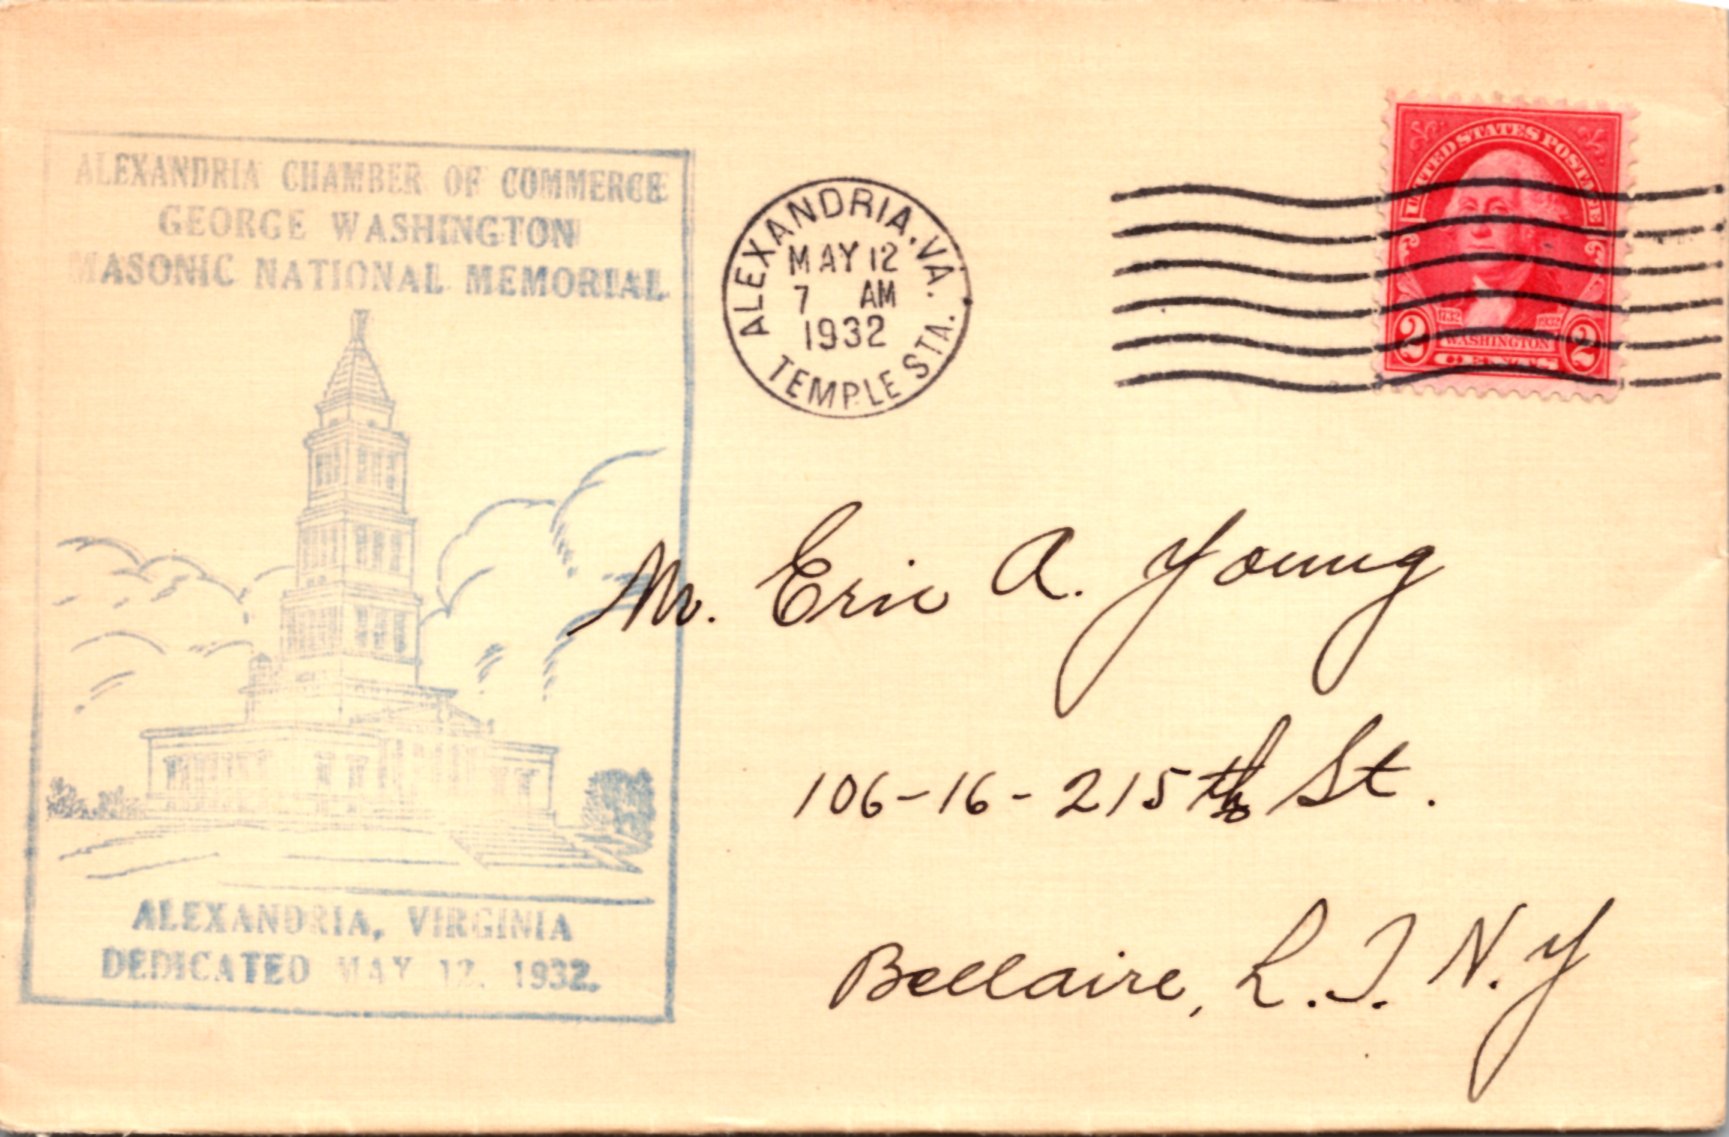 ALEXANDRIA CHAMBER OF COMMERCE
GEORGE WASHINGTON
MASONIC NATIONAL MEMORIAL
ALEXANDRIA, VIRGINIA
DEDICATED MAY 12, 1932.
ALEXANDRIA, VA.
MAY 12
7 AM
1932
TEMPLE STA.
UNITED STATES POSTAGE
1732 1932
2 WASHINGTON 2
CENTS
Mr. Eric A. Young
106-16-215th St.
Bellaire, L.I. N.Y